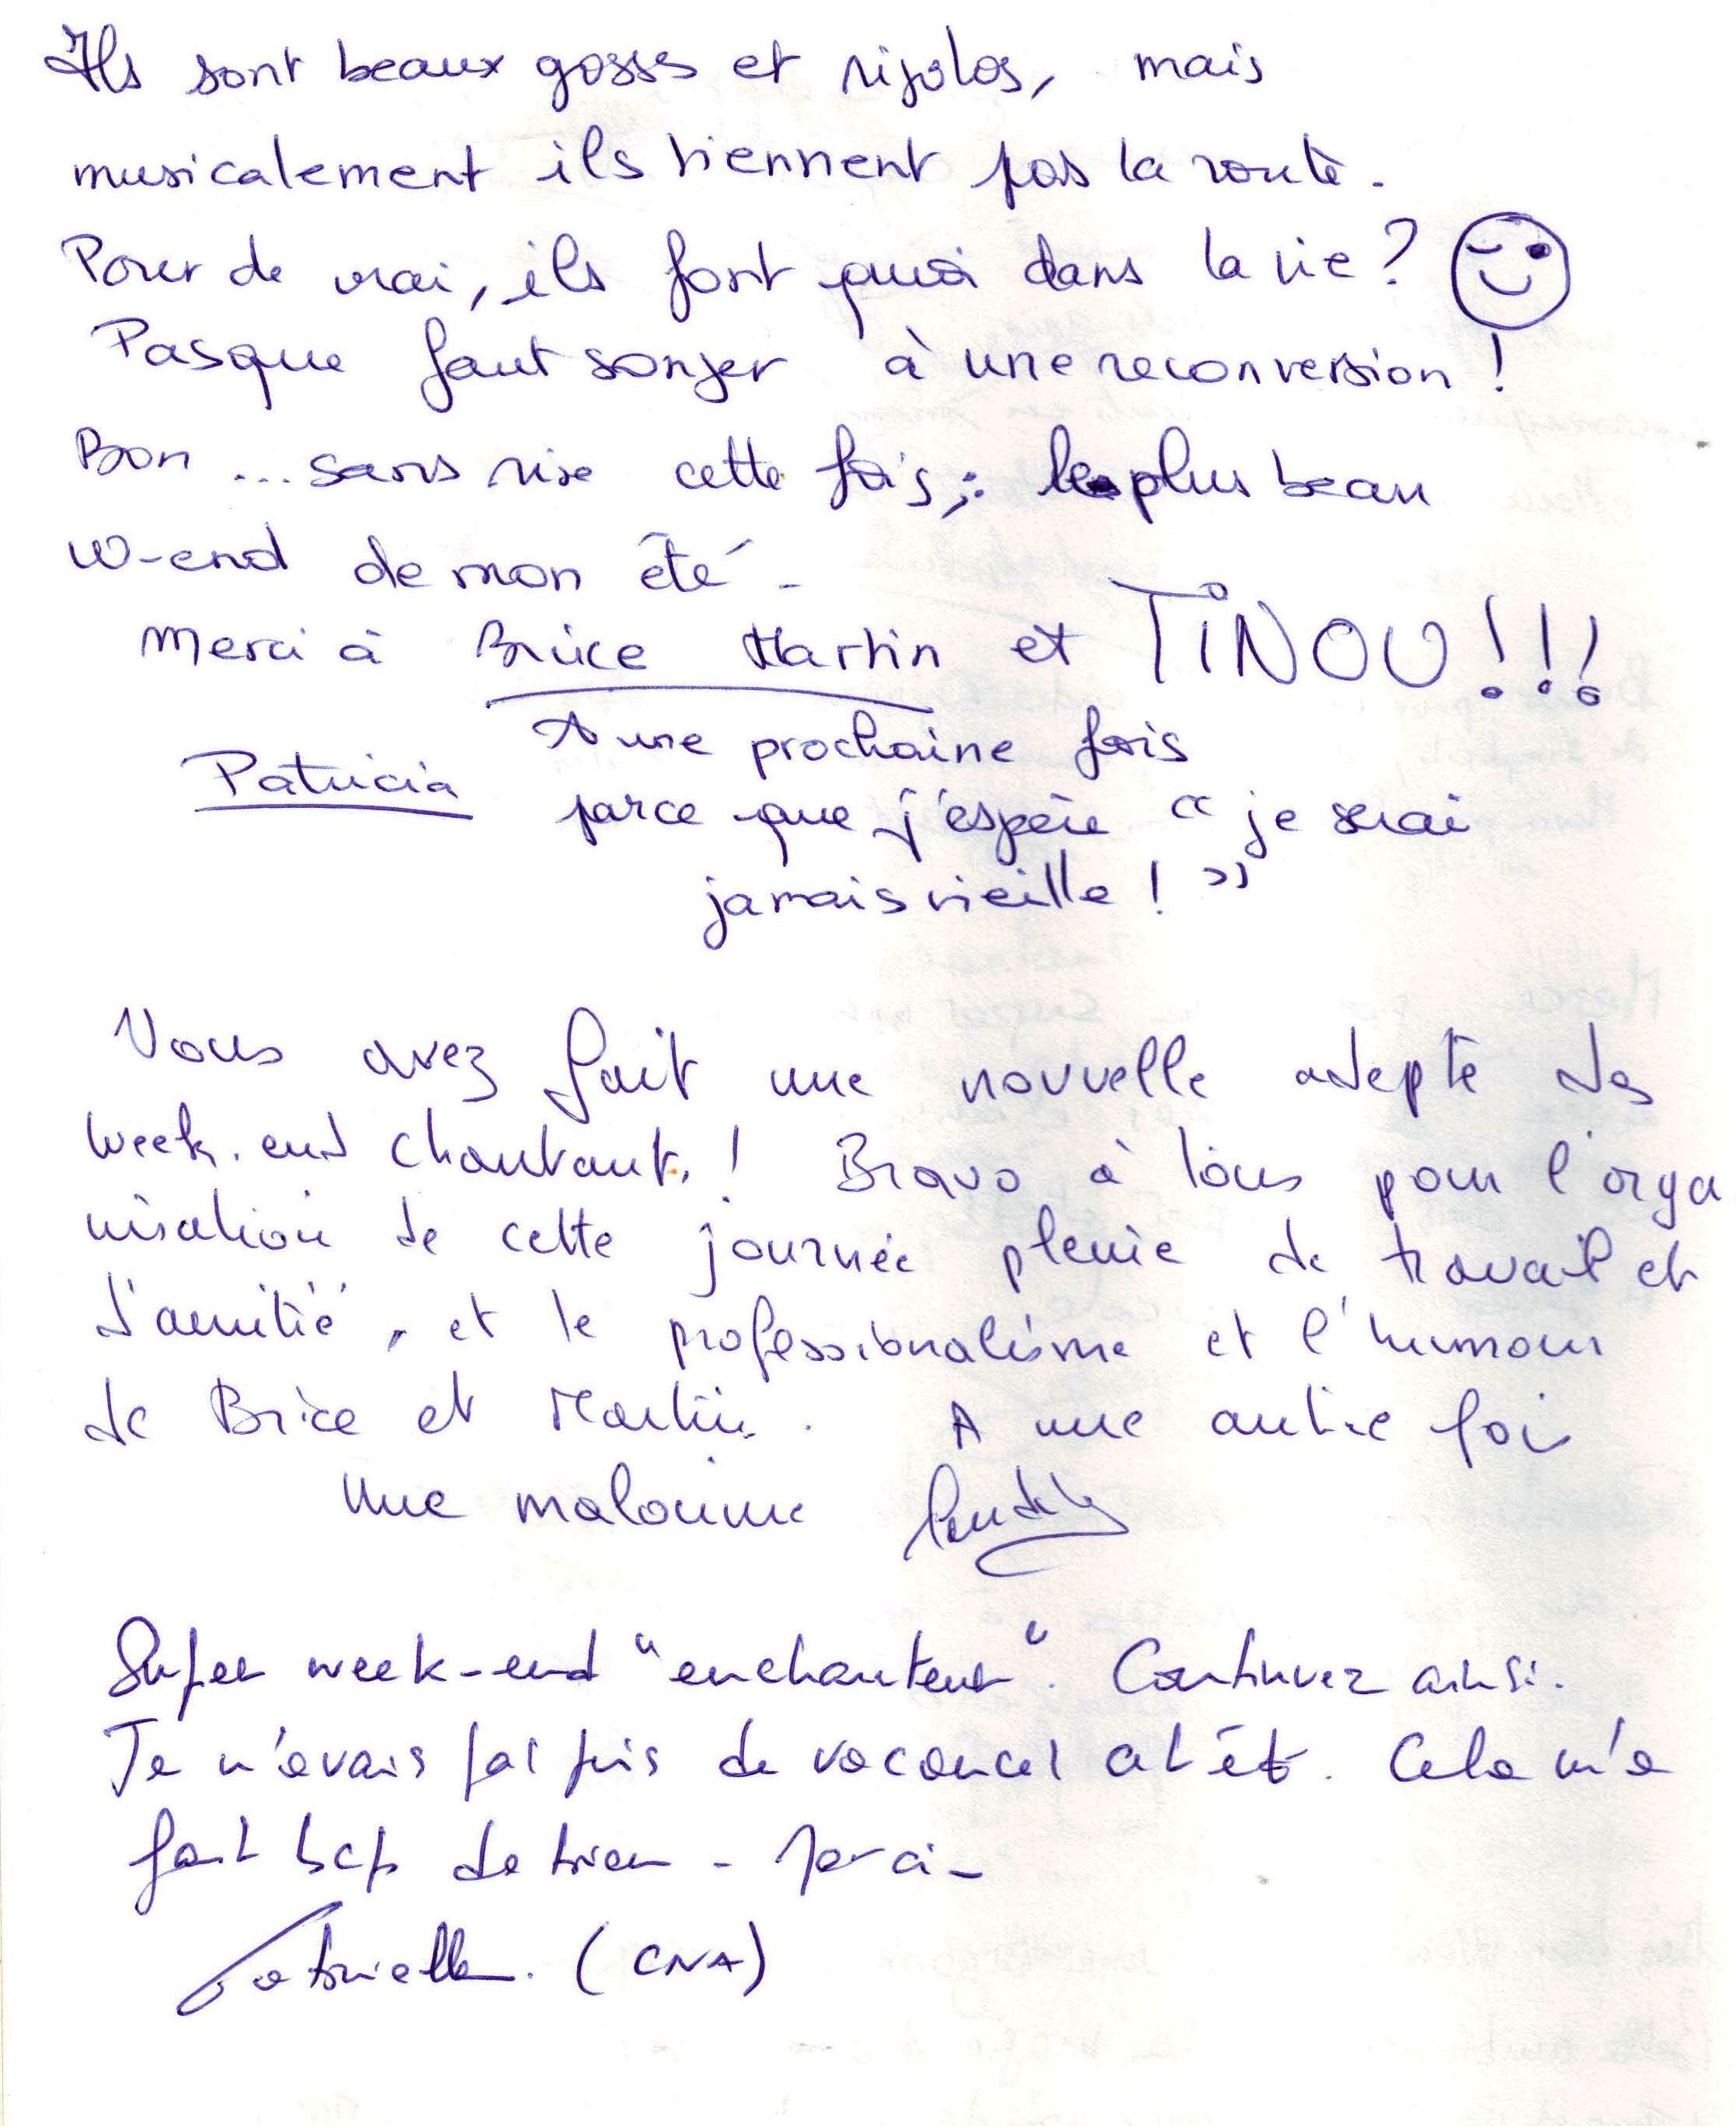 Ils sont beaux gosses et rigolos, mais
musicalement ils tiennent pas la route.
Pour de vrai, ils font quoi dans la vie ?
Pasque faut songer à une reconversion !
Bon ... sans rire cette fois ; : le plus beau
w-end de mon été -
Merci à Brice Martin et TINOU !!!
A une prochaine fois
Patricia parce que j'espère " je serai
jamais vieille ! "
Vous avez fait une nouvelle adepte des
week-end chantant ! Bravo à tous pour l'orga
nisation de cette journée pleine de travail et
d'amitié, et le professionalisme et l'humour
de Brice et Martin. A une autre fois
Une malouine
Super week-end "enchanteur". Continuez ainsi.
Je n'avais pas pris de vacances cet été. Cela m'a
fait bcp de bien - Merci -
Gabrielle. (CNA)